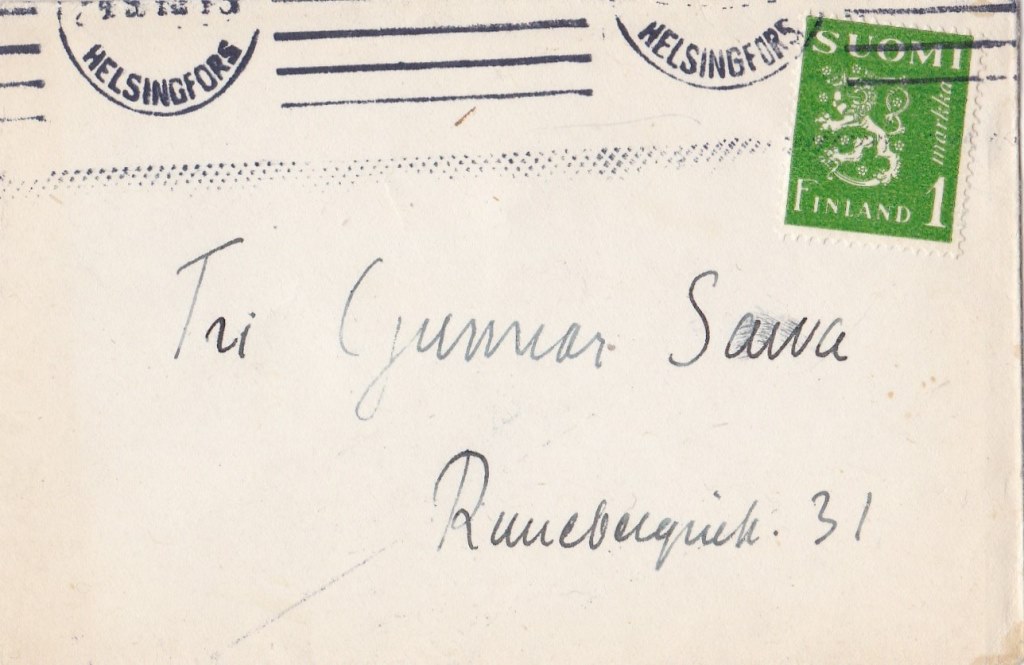 HELSINGFORS
HELSINGFORS
SUOMI
markkaa
FINLAND 1
Tri Gunnar Sawa
Runebergink. 31